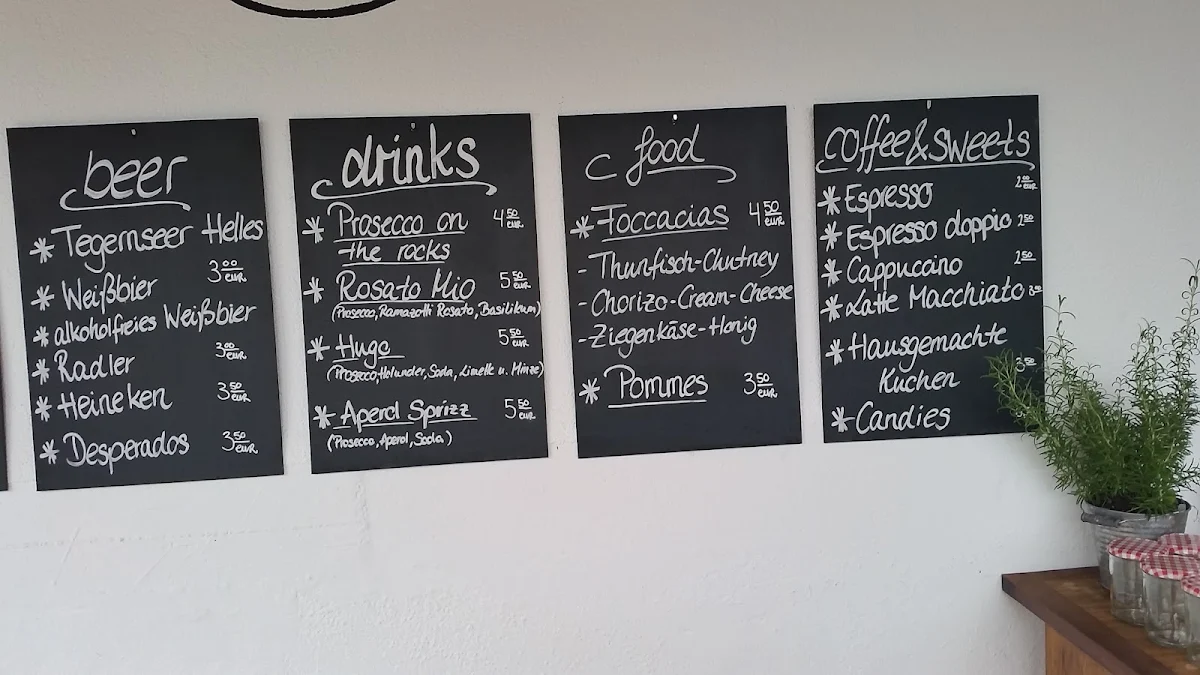 beer
* Tegernseer Helles
3.00 EUR
* Weißbier
* alkoholfreies Weißbier
* Radler 3.00 EUR
* Heineken 3.50 EUR
* Desperados 3.50 EUR
drinks
* Prosecco on 4.50 EUR
the rocks
* Rosato Mio 5.50 EUR
(Prosecco, Ramazotti Rosato, Basilikum)
* Hugo 5.50 EUR
(Prosecco, Holunder, Soda, Limette u. Minze)
* Aperol Sprizz 5.50 EUR
(Prosecco, Aperol, Soda)
food
* Foccacias 4.50 EUR
- Thunfisch-Chutney
- Chorizo-Cream-Cheese
- Ziegenkäse-Honig
* Pommes 3.50 EUR
coffee & sweets
2.00 EUR
* Espresso
* Espresso doppio 2.50
* Cappuccino 2.50
* Latte Macchiato
* Hausgemachte
Kuchen
* Candies